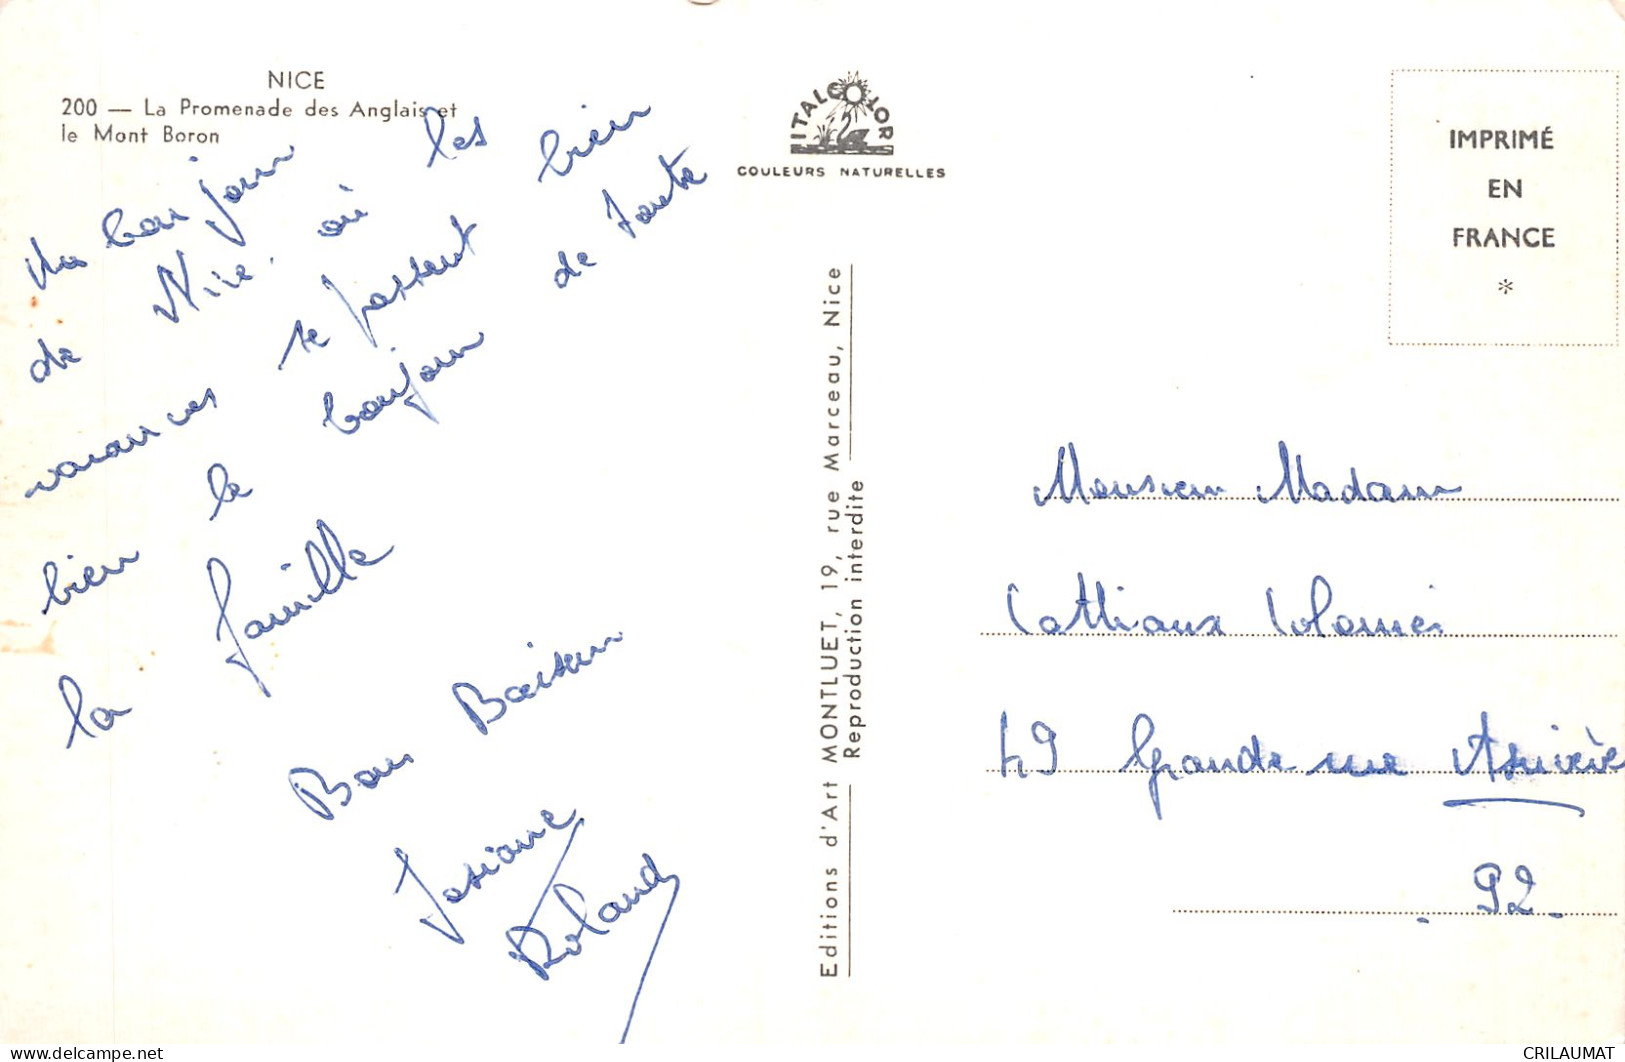 NICE
200 — La Promenade des Anglais et
le Mont Boron
Un bonjour
de Nice. où les
vacances se passent bien
bien le bonjour de toute
la famille
Bons Baisers
Josiane
Roland
ITALCOLOR
COULEURS NATURELLES
Editions d'Art MONTLUET, 19, rue Marceau, Nice
Reproduction interdite
IMPRIMÉ
EN
FRANCE
*
Monsieur Madame
Cattiaux
49 Grande rue
92
CRILAUMAT